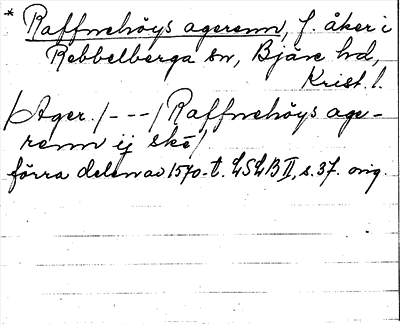 * Raffnehöys agerenn, f. åker i
Rebbelberga sn, Bjäre hd,
Krist. l.
/Ager./ - - - /Raffnehöys age-
renn ij ske/
förra delen av 1570-t. LSLB II, s. 37. orig.